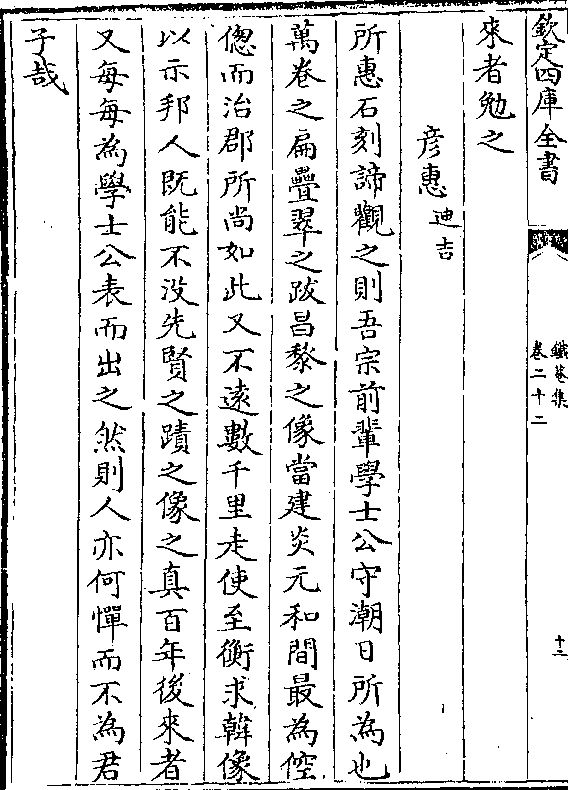 欽定四庫全書
鐵菴集
卷二十二
十二
來者勉之
彥惠 迪吉
所惠石刻諦觀之則吾宗前輩學士公守潮日所為也
萬卷之扁疊翠之跋昌黎之像當建炎元和間最為倥
傯而治郡所尚如此又不遠數千里走使至衡求韓像
以示邦人既能不没先賢之蹟之像之真百年後來者
又每每為學士公表而出之然則人亦何憚而不為君
子哉